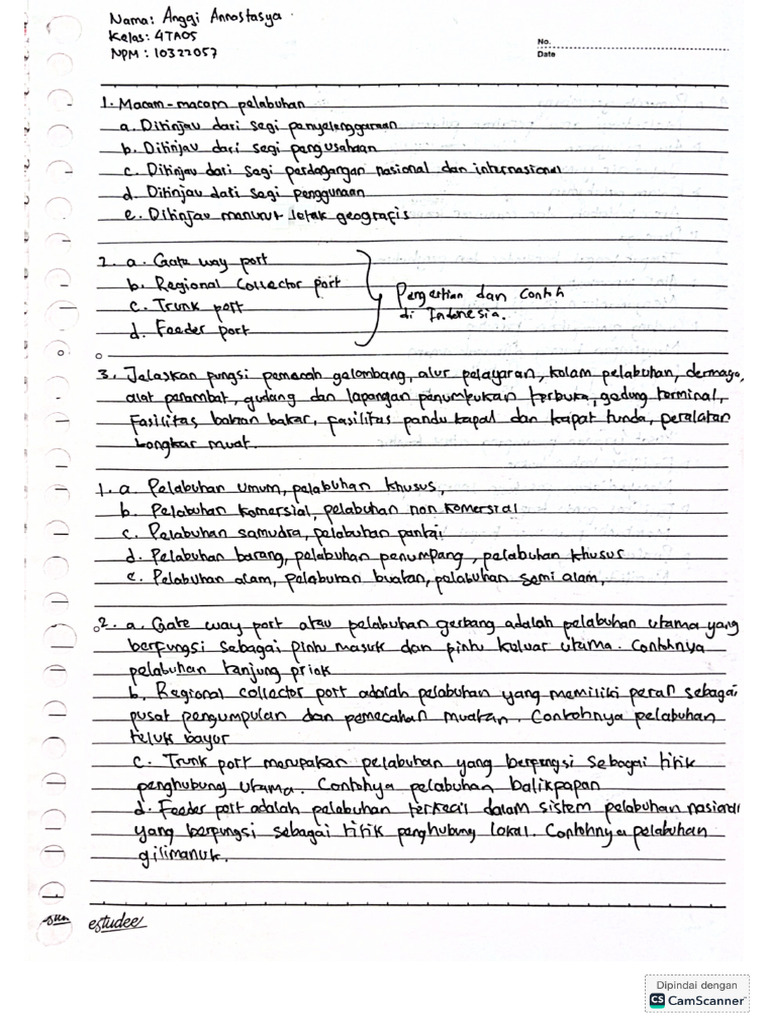 Nama: Anggi Annastasya
Kelas: 4TA05
NPM: 10322057
No.
Date
1. Macam-macam pelabuhan
a. Ditinjau dari segi penyelenggaraan
b. Ditinjau dari segi pengusahaan
c. Ditinjau dari segi perdagangan nasional dan internasional
d. Ditinjau dari segi penggunaan
e. Ditinjau menurut letak geografis
2. a. Gate way port
b. Regional Collector port
c. Trunk port
d. Feeder port
Pengertian dan Contoh
di Indonesia.
3. Jelaskan fungsi pemecah gelombang, alur pelayaran, kolam pelabuhan, dermaga,
alat penambat, gudang dan lapangan penumpukan terbuka, gedung terminal,
Fasilitas bahan bakar, fasilitas pandu kapal dan kapal tunda, peralatan
bongkar muat.
1. a. Pelabuhan umum, pelabuhan khusus,
b. Pelabuhan komersial, pelabuhan non komersial
c. Pelabuhan samudra, pelabuhan pantai
d. Pelabuhan barang, pelabuhan penumpang, pelabuhan khusus
e. Pelabuhan alam, pelabuhan buatan, pelabuhan semi alam,
2. a. Gate way port atau pelabuhan gerbang adalah pelabuhan utama yang
berfungsi sebagai pintu masuk dan pintu keluar utama. Contohnya
pelabuhan tanjung priok
b. Regional collector port adalah pelabuhan yang memiliki peran sebagai
pusat pengumpulan dan pemecahan muatan. Contohnya pelabuhan
teluk bayur
c. Trunk port merupakan pelabuhan yang berfungsi sebagai titik
penghubung utama. Contohya pelabuhan balikpapan
d. Feeder port adalah pelabuhan terkecil dalam sistem pelabuhan nasional
yang berfungsi sebagai titik penghubung lokal. Contohnya pelabuhan
gilimanuk.
estudee
Dipindai dengan
CS CamScanner